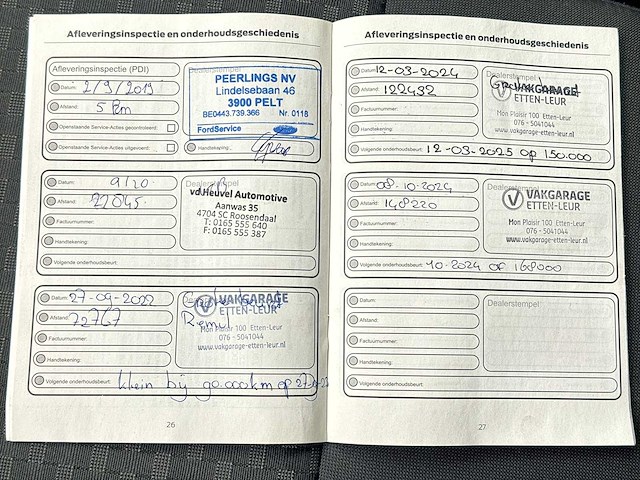 Afleveringsinspectie en onderhoudsgeschiedenis
Afleveringsinspectie (PDI)
Datum: 2/9/2019
Afstand: 5 km
Openstaande Service-Acties gecontroleerd:
Openstaande Service-Acties uitgevoerd:
Dealerstempel
PEERLINGS NV
Lindelsebaan 46
3900 PELT
BE0443.739.366 Nr. 0118
FordService
Handtekening:
Datum: 9/20
Afstand: 27045
Factuurnummer:
Handtekening:
Volgende onderhoudsbeurt:
Dealerstempel
vd.Heuvel Automotive
Aanwas 35
4704 SC Roosendaal
T: 0165 555 640
F: 0165 555 387
Datum: 27-09-2022
Afstand: 72767
Factuurnummer:
Handtekening:
Volgende onderhoudsbeurt: klein bij 90.000km op
Dealerstempel
VAKGARAGE
ETTEN-LEUR
Mon Plaisir 100 Etten-Leur
076 - 5041044
www.vakgarage-etten-leur.nl
26
Afleveringsinspectie en onderhoudsgeschiedenis
Datum: 12-03-2024
Afstand: 122432
Factuurnummer:
Handtekening:
Volgende onderhoudsbeurt: 12-03-2025 op 150.000
Dealerstempel
VAKGARAGE
ETTEN-LEUR
Mon Plaisir 100 Etten-Leur
076 - 5041044
www.vakgarage-etten-leur.nl
Datum: 08-10-2024
Afstand: 148220
Factuurnummer:
Handtekening:
Volgende onderhoudsbeurt: 10-2024 of 168000
Dealerstempel
VAKGARAGE
ETTEN-LEUR
Mon Plaisir 100 Etten-Leur
076 - 5041044
www.vakgarage-etten-leur.nl
Datum:
Afstand:
Factuurnummer:
Handtekening:
Volgende onderhoudsbeurt:
Dealerstempel
27